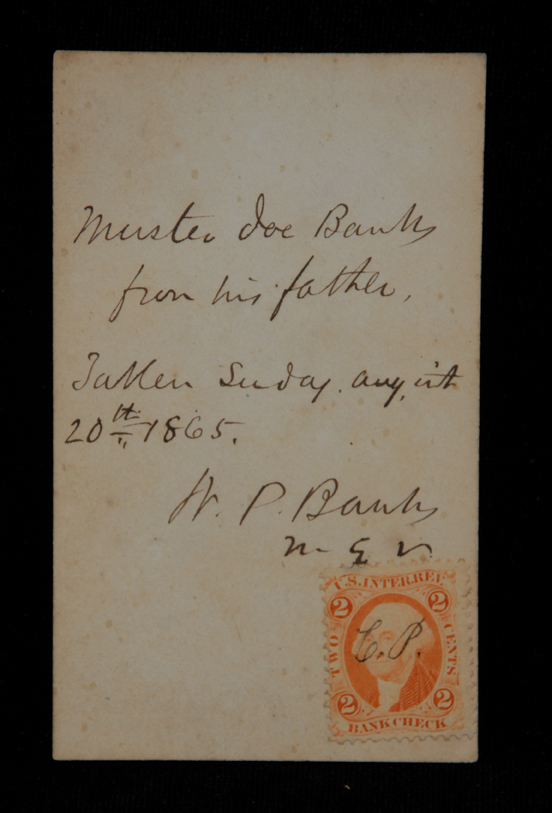 Master Joe Banks
from his father.
Taken Sunday. August
20th 1865.
N. P. Banks
M G V
U.S. INTER. REV.
2 2
TWO CENTS
C.P.
2 2
BANK CHECK